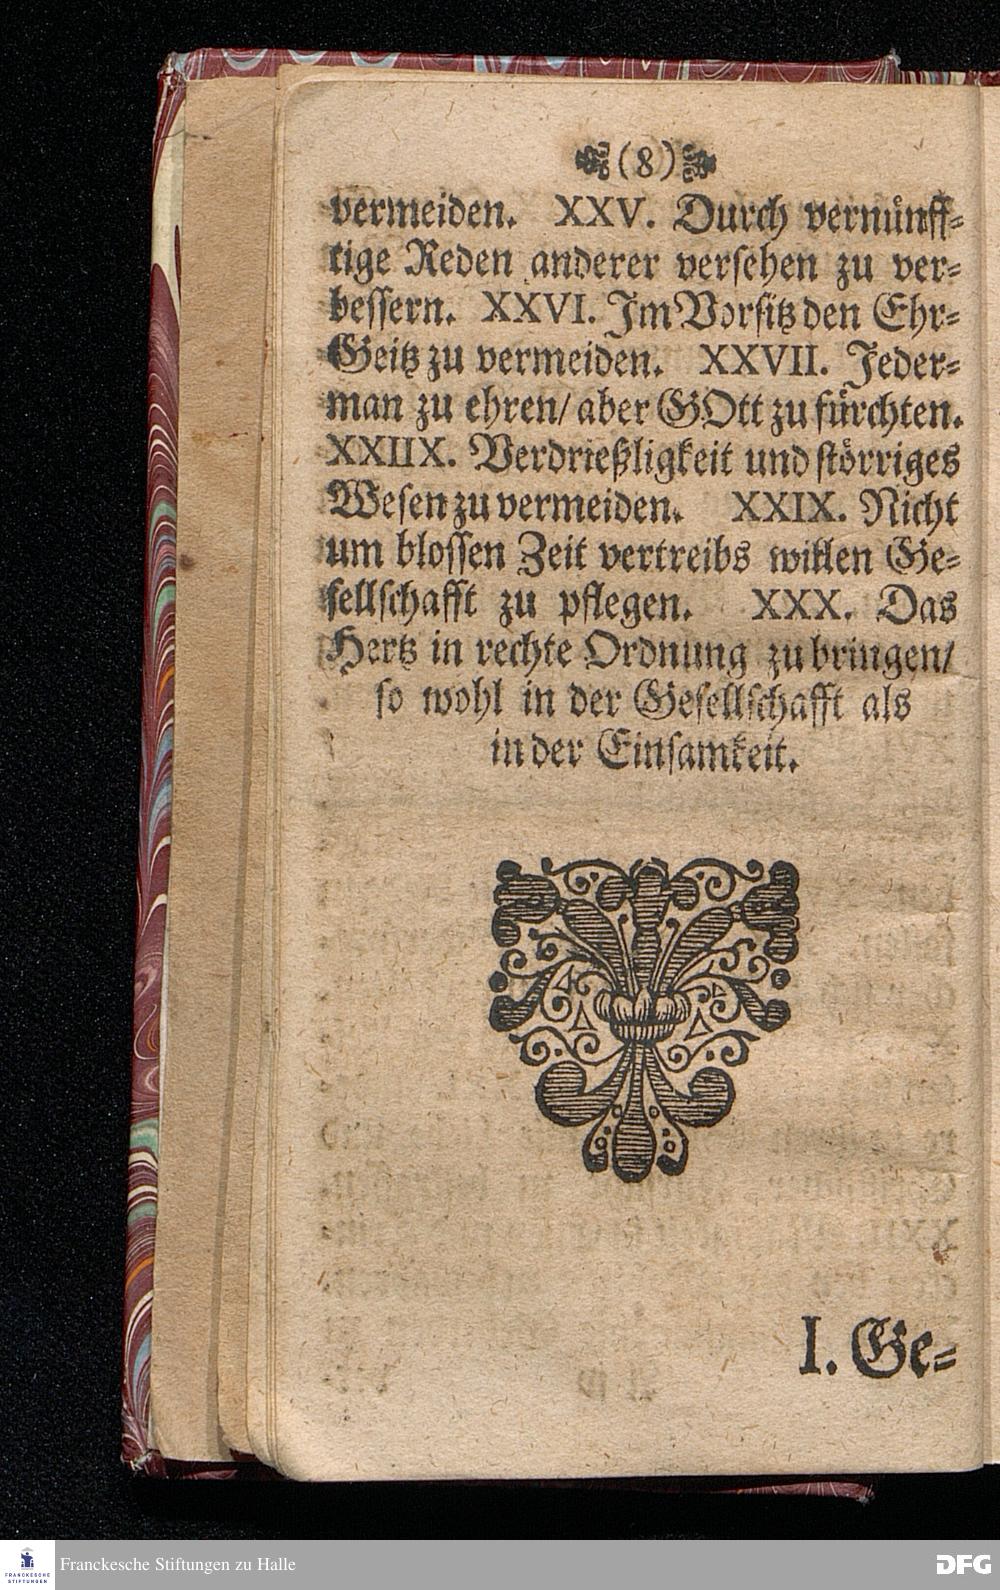 (8)
vermeiden. XXV. Durch vernünff-
tige Reden anderer versehen zu ver-
bessern. XXVI. Im Vorsitz den Ehr-
Geitz zu vermeiden. XXVII. Jeder-
man zu ehren/ aber GOtt zu fürchten.
XXIIX. Verdrießligkeit und störriges
Wesen zu vermeiden. XXIX. Nicht
um blossen Zeit vertreibs willen Ge-
sellschafft zu pflegen. XXX. Das
Hertz in rechte Ordnung zu bringen/
so wohl in der Gesellschafft als
in der Einsamkeit.
I. Ge-
FRANCKESCHE
STIFTUNGEN
Franckesche Stiftungen zu Halle
DFG